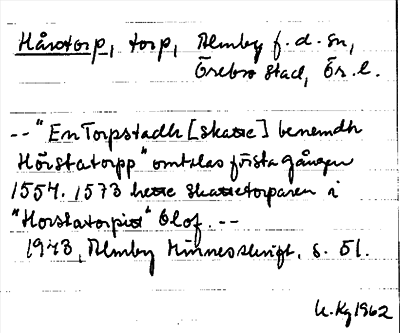 Hårstorp, torp, Almby f.d. sn,
Örebro stad, Ör. l.
-- "En Torpstadh [skatte] benemdh
Hörstatorpp" omtalas första gången
1554. 1573 hette skattetorparen i
"Horstatorpit" Olof. --
1943, Almby Minnesskrift, s. 51.
K. Kg 1962